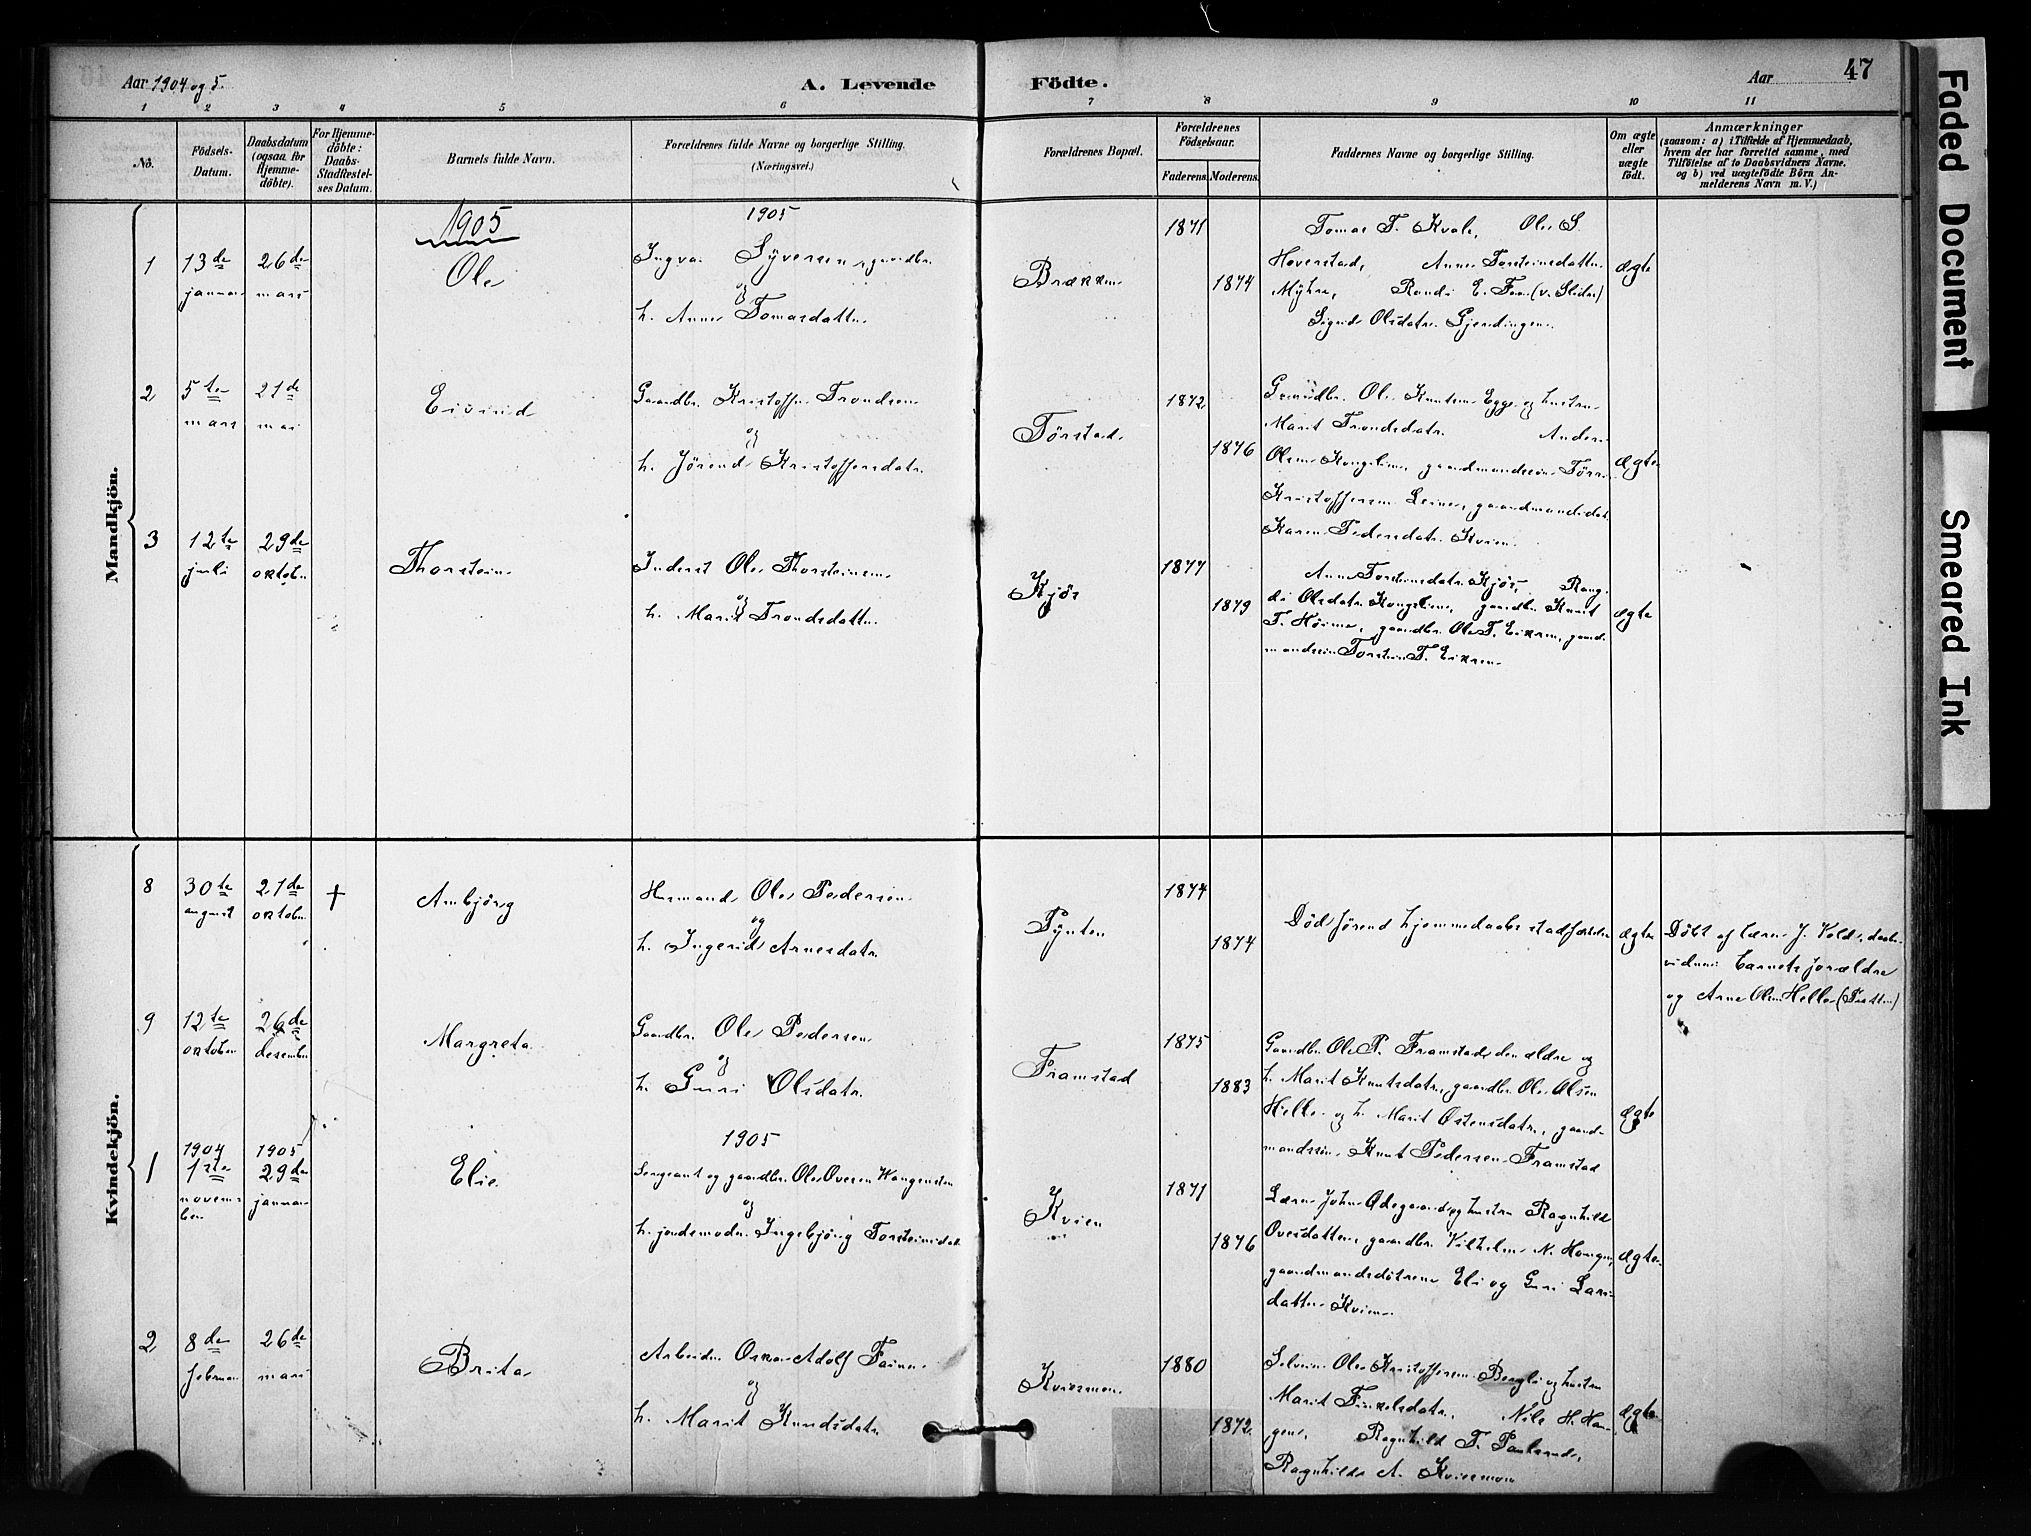 Aar 1904 og 5.
A. Levende
Födte.
Aar
47
1 2 3 4 5 6 7 8 9 10 11
No.
Födsels-
Datum.
Daabsdatum
(ogsaa for
Hjemme-
döbte).
For Hjemme-
döbte:
Daabs-
Stadfæstel-
ses Datum.
Barnets fulde Navn.
Forældrenes fulde Navne og borgerlige Stilling.
(Næringsvei.)
Forældrenes Bopæl.
Forældrenes
Födselsaar.
Faderens. Moderens.
Faddernes Navne og borgerlige Stilling.
Om ægte
eller
uægte
födt.
Anmærkninger
(saasom: a) i Tilfælde af Hjemmedaab,
hvem der har forrettet samme, med
Tilföielse af to Daabsvidners Navne,
og b) ved uægtefödte Börn An-
melderens Navn m. V.)
Mandkjön.
1905
1905
1
13de
januar
26de
mars
Ole
Ingva. Syversen, gaardbr.
og
h. Anne Tomasdatter
Brækken
1871
1874
Tomas T. Kvale, Ole S.
Hoverstad, Anne Torsteinsdatter
Myhre, Randi E. Foss (v. Slidre)
Sigrid Olsdatr. Gjerdingen
ægte
2
5te
mars
21de
mai
Eivind
Gaardbr. Kristoffer Trondsen
og
h. Jörend Kristoffersdatr.
Törstad
1872
1876
Gaardbr. Ole Knutsen Egge og hustru
Marit Trondsdatr. Anders
Olsen Kongslien, gaardmandssön Törre
Kristoffersen Leine, gaardmandsdat.
Karen Pedersdatr. Kvien
ægte
3
12te
juli
29de
oktober
Thorstein
Inderst Ole Thorsteinsen
og
h. Marit Trondsdatter
Kjös
1877
1879
Anne Torsteinsdatr. Kjös, Rang-
di Olsdatr. Kongslien, gaardbr. Knut
T. Höime, gaardbr. Ole T. Eikren, gaard-
mandssön Torstein T. Eikren
ægte
Kvindekjön.
8
30te
august
21de
oktober
†
Ambjörg
Husmand Ole Pedersen
og
h. Ingerid Arnesdatr.
Pynten
1874
1874
Död förend hjemmedaaben stadfæstedes
ægte
Döbt af lærer J. Vold, daabs-
vidner barnets forældre
og Arne Olsen Helle (Prætten)
9
12te
oktober
26de
desember
Margreta
Gaardbr. Ole Pedersen
og
h. Guri Olsdatr.
Framstad
1875
1883
Gaardbr. Ole P. Framstad, den ældre og
h. Marit Knutsdatr., gaardbr. Ole Olsen
Hielle og h. Marit Östensdatr., gaard-
mandssön Knut Pedersen Framstad
ægte
1
1904
1ste
novem-
ber
1905
29de
januar
Elie
1905
Sergeant og gaardbr. Ole Oversen Wangensten
og
h. jordemoder Ingebjörg Torsteinsdat.
Kvien
1871
1876
Lærer John Ödegaard og hustru Ragnhild
Ovesdatter, gaardbr. Vilhelm N. Haugen,
gaardmandsdötrene Eli og Guri Lars-
datter Kvien
ægte
2
8de
februar
26de
mars
Brita
Arbeider Oskar Adolf
og
h. Marit Knudsdatr.
Kviesmoen
1880
1872
Selveier Ole Kristoffersen Bergli og hustru
Marit Finkelsdatr., Nils H. Hau-
gen, Ragnhild T. Paulsrud,
Ragnhild A. Kviesmoen
ægte
Faded Document
Smeared Ink